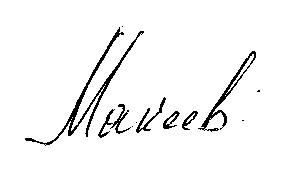 Макеев